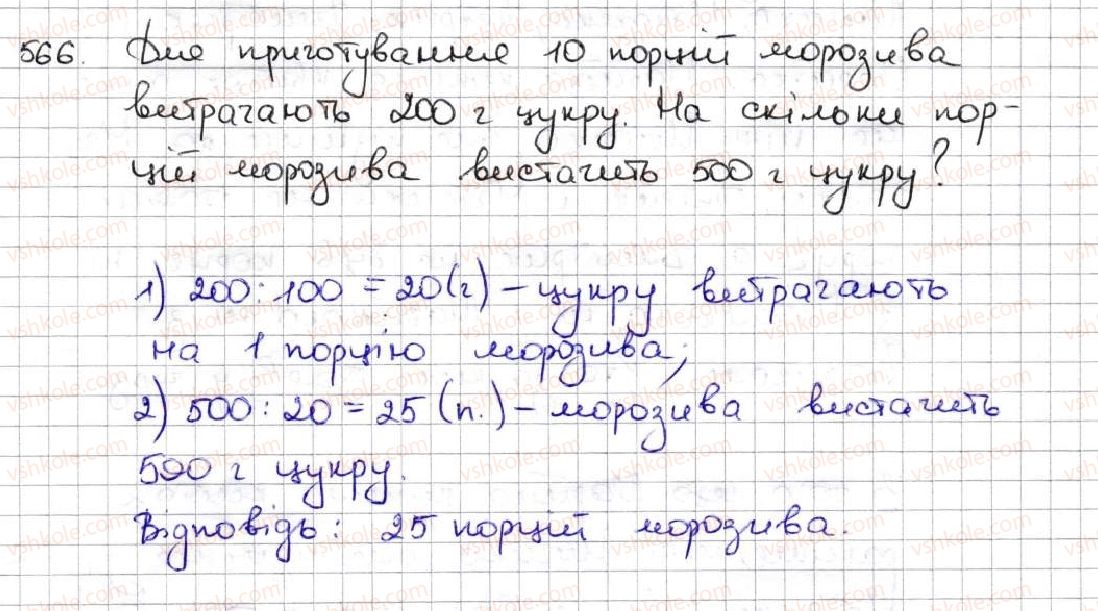 566. Для приготування 10 порцій морозива
витрачають 200 г цукру. На скільки пор-
цій морозива вистачить 500 г цукру?
1) 200 : 100 = 20 (г) – цукру витрачають
на 1 порцію морозива;
2) 500 : 20 = 25 (п.) – морозива вистачить
500 г цукру.
Відповідь: 25 порцій морозива.